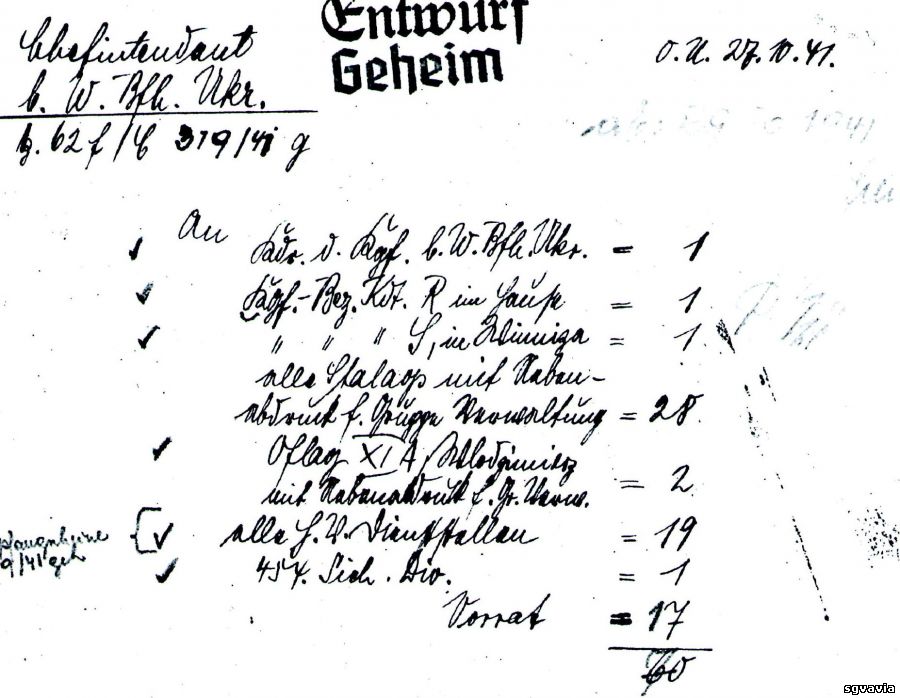 Entwurf
Geheim
Chefintendant
b. W. Bfh. Ukr.
O.U. 27.10.41.
Az. 62 f / C 319/41 g
An
Kdr. d. Kgf. b. W. Bfh. Ukr. = 1
Kgf.-Bez. Kdt. R im Hause = 1
" " " S, in Winniza = 1
alle Stalags mit Neben-
abdruck f. Gruppe Verwaltung = 28
Oflag XI A, Wlodzimierz
mit Nebenabdruck f. Gr. Verw. = 2
alle H.V. Dienststellen = 19
/41 geh
454. Sich. Div. = 1
Vorrat = 17
sgvavia